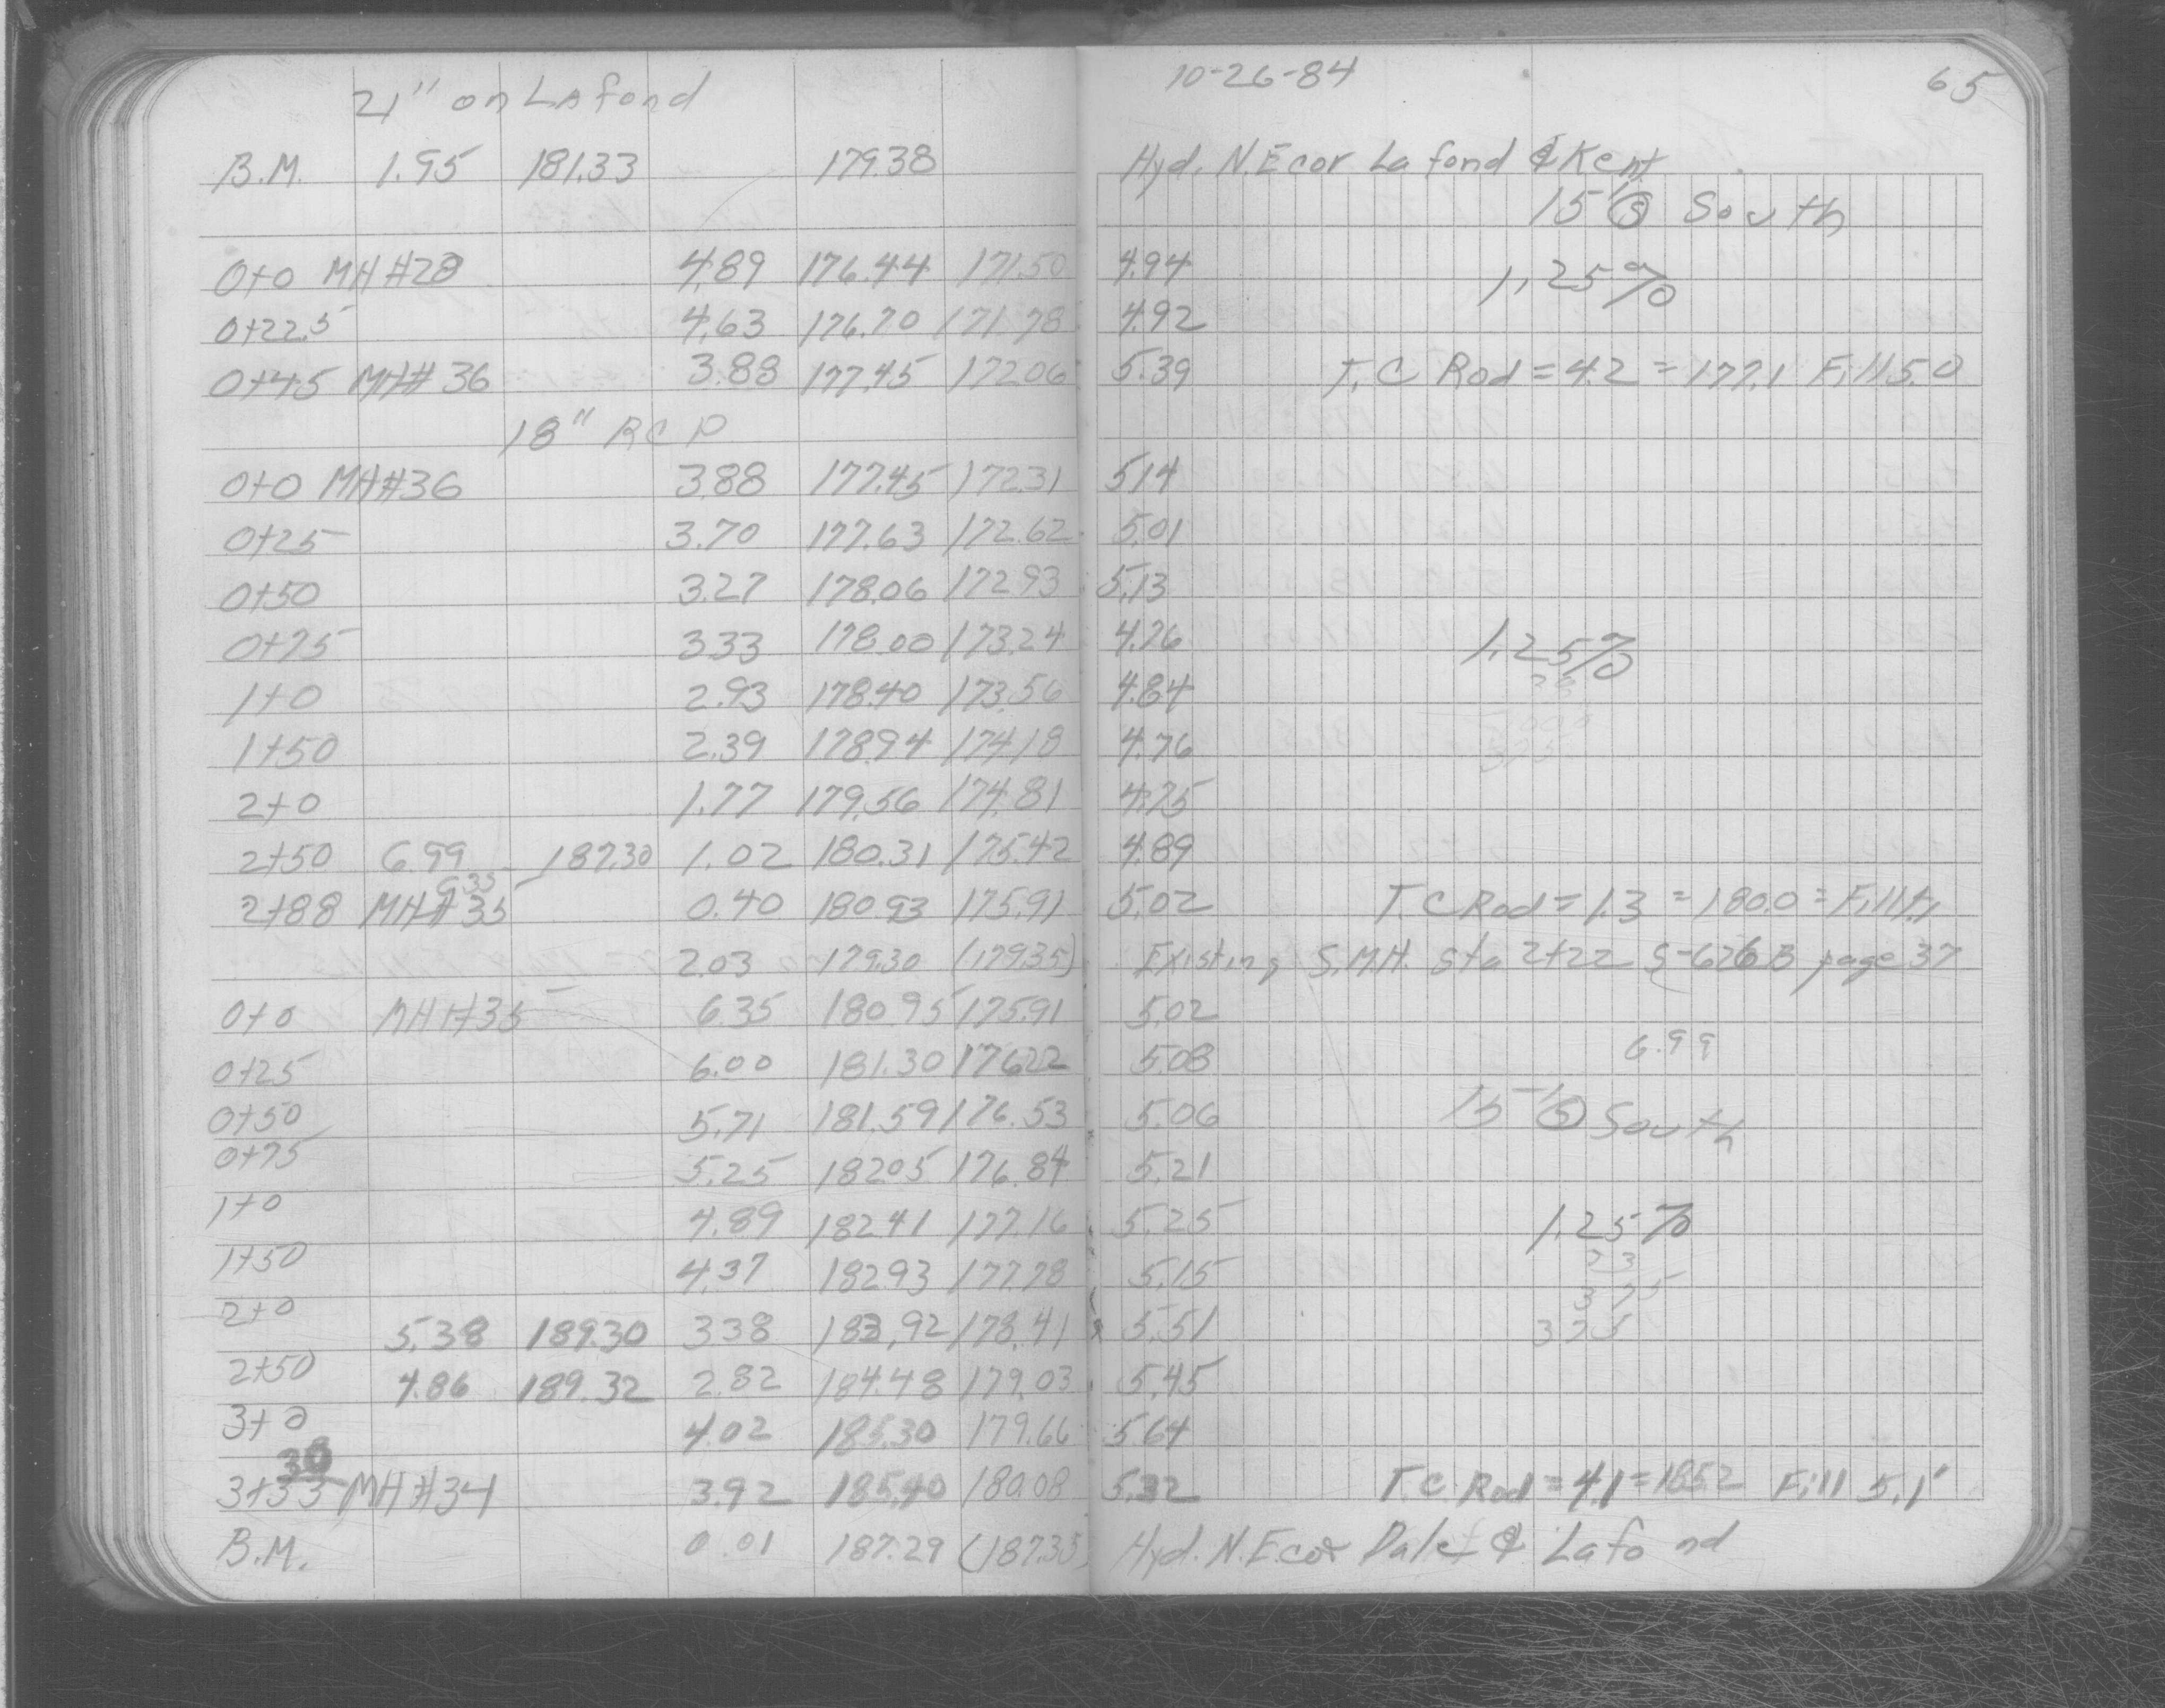 21" on Lafond 10-26-84 65
B.M. 1.95 181.33 179.38 Hyd. N.E cor Lafond & Kent
15' S South
0+0 MH #28 4.89 176.44 171.50 4.94 1.25%
0+22.5 4.63 176.70 171.78 4.92
0+45 MH# 36 3.88 177.45 172.06 5.39 T.C Rod = 4.2 = 177.1 Fill 5.0
18" RCP
0+0 MH#36 3.88 177.45 172.31 5.14
0+25 3.70 177.63 172.62 5.01
0+50 3.27 178.06 172.93 5.13
0+75 3.33 178.00 173.24 4.76 1.25%
1+0 2.93 178.40 173.56 4.84
1+50 2.39 178.94 174.18 4.76
2+0 1.77 179.56 174.81 4.75
2+50 6.99 187.30 1.02 180.31 175.42 4.89
6.35
2+88 MH#35 0.40 180.93 175.91 5.02 T.C Rod = 1.3 = 180.0 = Fill
2.03 179.30 (179.35) Existing S.M.H. Sta 2+22 S-626B page 37
0+0 MH#35 6.35 180.95 175.91 5.02
6.99
0+25 6.00 181.30 176.22 5.08
0+50 5.71 181.59 176.53 5.06 15' S South
0+75 5.25 182.05 176.84 5.21
1+0 4.89 182.41 177.16 5.25 1.25%
1+50 4.37 182.93 177.78 5.15 33
375
2+0 5.38 189.30 3.38 183.92 178.41 5.51 375
2+50 4.86 189.32 2.82 184.48 179.03 5.45
3+0 4.02 185.30 179.66 5.64
30
3+33 MH#34 3.92 185.40 180.08 5.32 T.C. Rod = 4.1 = 185.2 Fill 5.1'
B.M. 0.01 187.29 (187.35) Hyd. N.E. cor Dale & Lafond